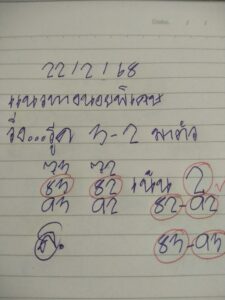 22/2/68
แนวทางฮานอยพิเศษ
วิ่ง...รูด 3-2 มาตัว
73 72
83 82 เน้น 2
93 92 82-92
83-93